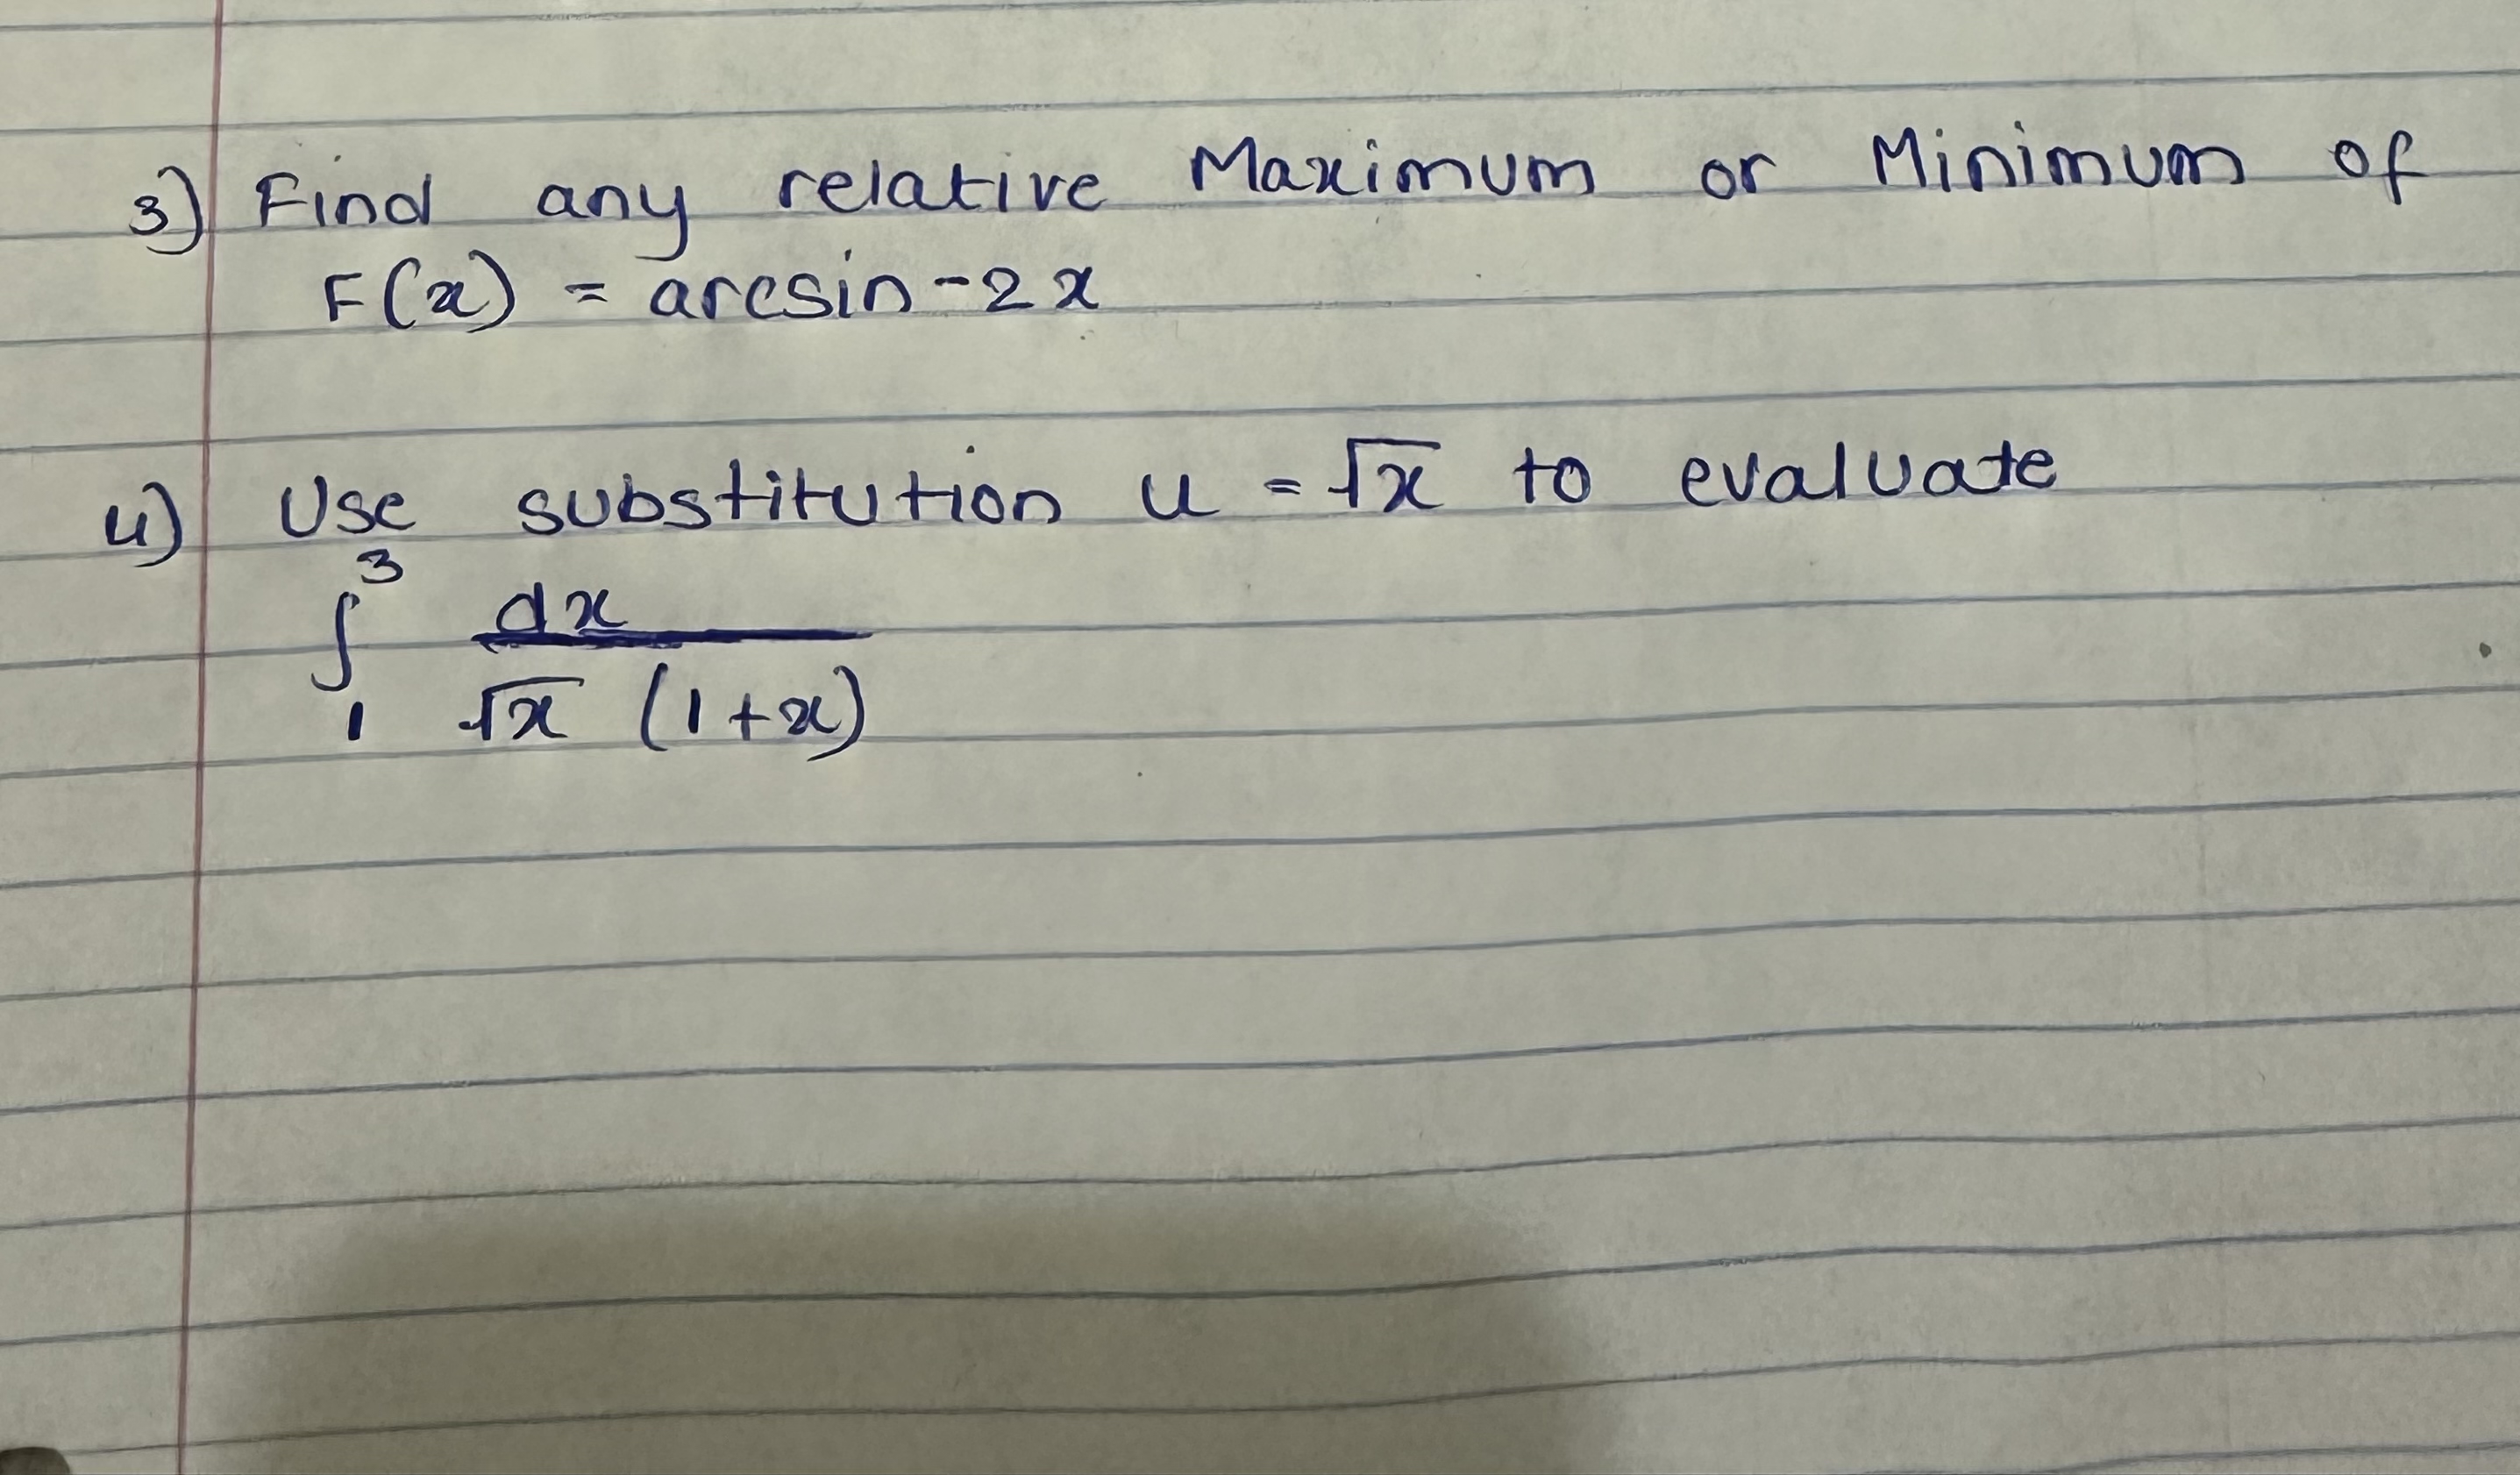 3) Find any relative Maximum or Minimum of
F(x) = arcsin-2x
4) Use substitution u = √x to evaluate
∫₁³ dx / √x (1+x)